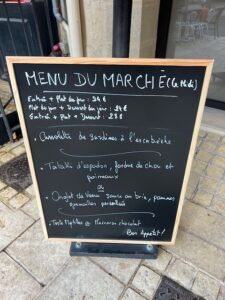 MENU DU MARCHÉ (Le Midi)
Entrée + Plat du jour : 24€
Plat du jour + Dessert du jour : 24€
Entrée + Plat + Dessert : 28€
de sardines à l'escabèche
d'espadon, fondue de chou et
poireaux
ou
de Veau sauce au brie, pommes
grenailles persillade
Tarte Myrtilles ou Macaron chocolat
Bon Appétit!